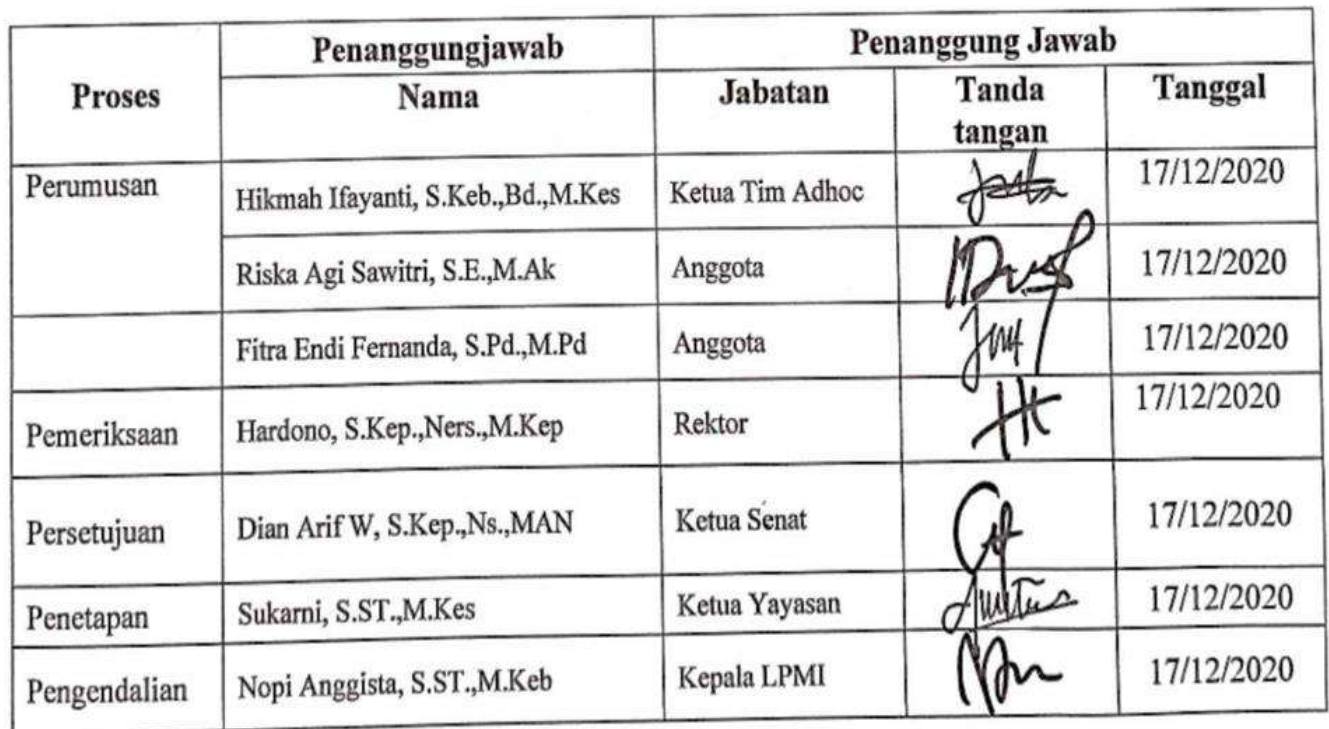 Penanggungjawab Penanggung Jawab
Proses Nama Jabatan Tanda tangan Tanggal
Perumusan Hikmah Ifayanti, S.Keb.,Bd.,M.Kes Ketua Tim Adhoc 17/12/2020
Riska Agi Sawitri, S.E.,M.Ak Anggota 17/12/2020
Fitra Endi Fernanda, S.Pd.,M.Pd Anggota 17/12/2020
Pemeriksaan Hardono, S.Kep.,Ners.,M.Kep Rektor 17/12/2020
Persetujuan Dian Arif W, S.Kep.,Ns.,MAN Ketua Senat 17/12/2020
Penetapan Sukarni, S.ST.,M.Kes Ketua Yayasan 17/12/2020
Pengendalian Nopi Anggista, S.ST.,M.Keb Kepala LPMI 17/12/2020